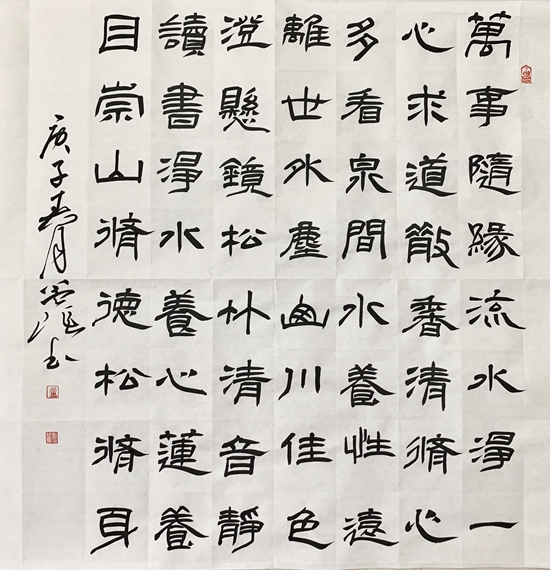 萬事隨緣流水淨一
心求道散香清脩心
多看泉間水養性遠
離世外塵川佳色
澄懸鏡松竹清音靜
讀書淨水養心蓮養
目崇山脩德松脩身
庚子春月书